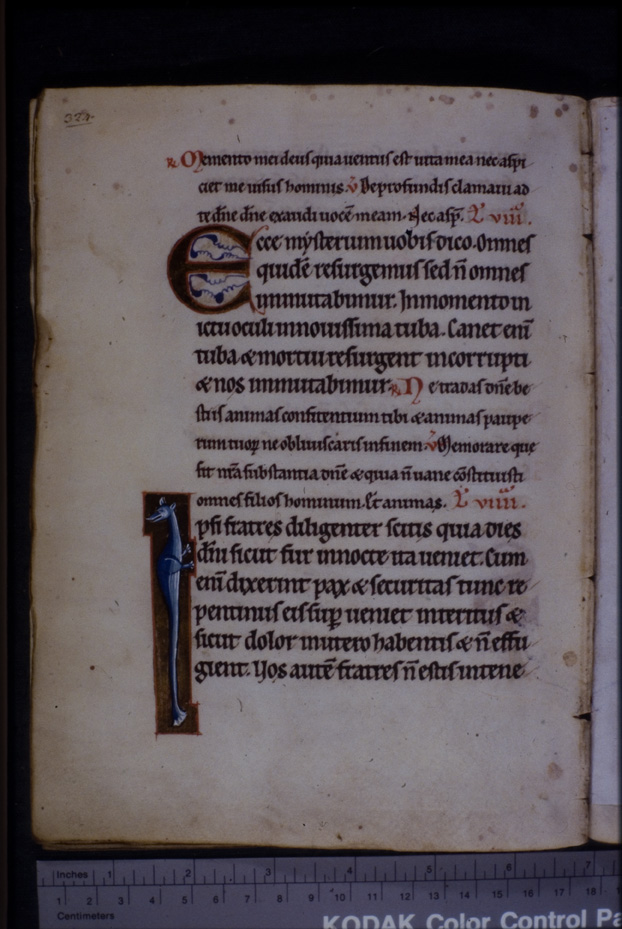 324.
R Memento mei deus quia uentus est uita mea nec aspi
ciet me uisus hominis. v̄ De profundis clamaui ad
te dn̄e dn̄e exaudi uocē meam. Nec asp̄. L̄ viii.
Ecce mysterium uobis dico. Omnes
quidē resurgemus sed n̄ omnes
immutabimur. In momento in
ictu oculi in nouissima tuba. Canet eni͞
tuba & mortui resurgent incorrupti
& nos immutabimur. R Ne tradas dn̄e be
stiis animas confitentium tibi & animas paupe
rum tuoꝝ ne obliuiscaris in finem. v̄ Memorare que
sit mā substantia dn̄e & qͥa n̄ uane cōstituisti
omnes filios hominum. Et animas. L̄ viiii.
Ipsi fratres diligenter scitis quia dies
dn̄i sicut fur in nocte ita ueniet. Cum
eni͞ dixerint pax & securitas tunc re
pentinus eis sup̄ ueniet interitus &
sicut dolor in utero habentis & n̄ effu
gient. Uos autē fratres n̄ estis in tene
Inches 1 2 3 4 5 6 7
1 2 3 4 5 6 7 8 9 10 11 12 13 14 15 16 17 18
Centimeters
KODAK Color Control Pa